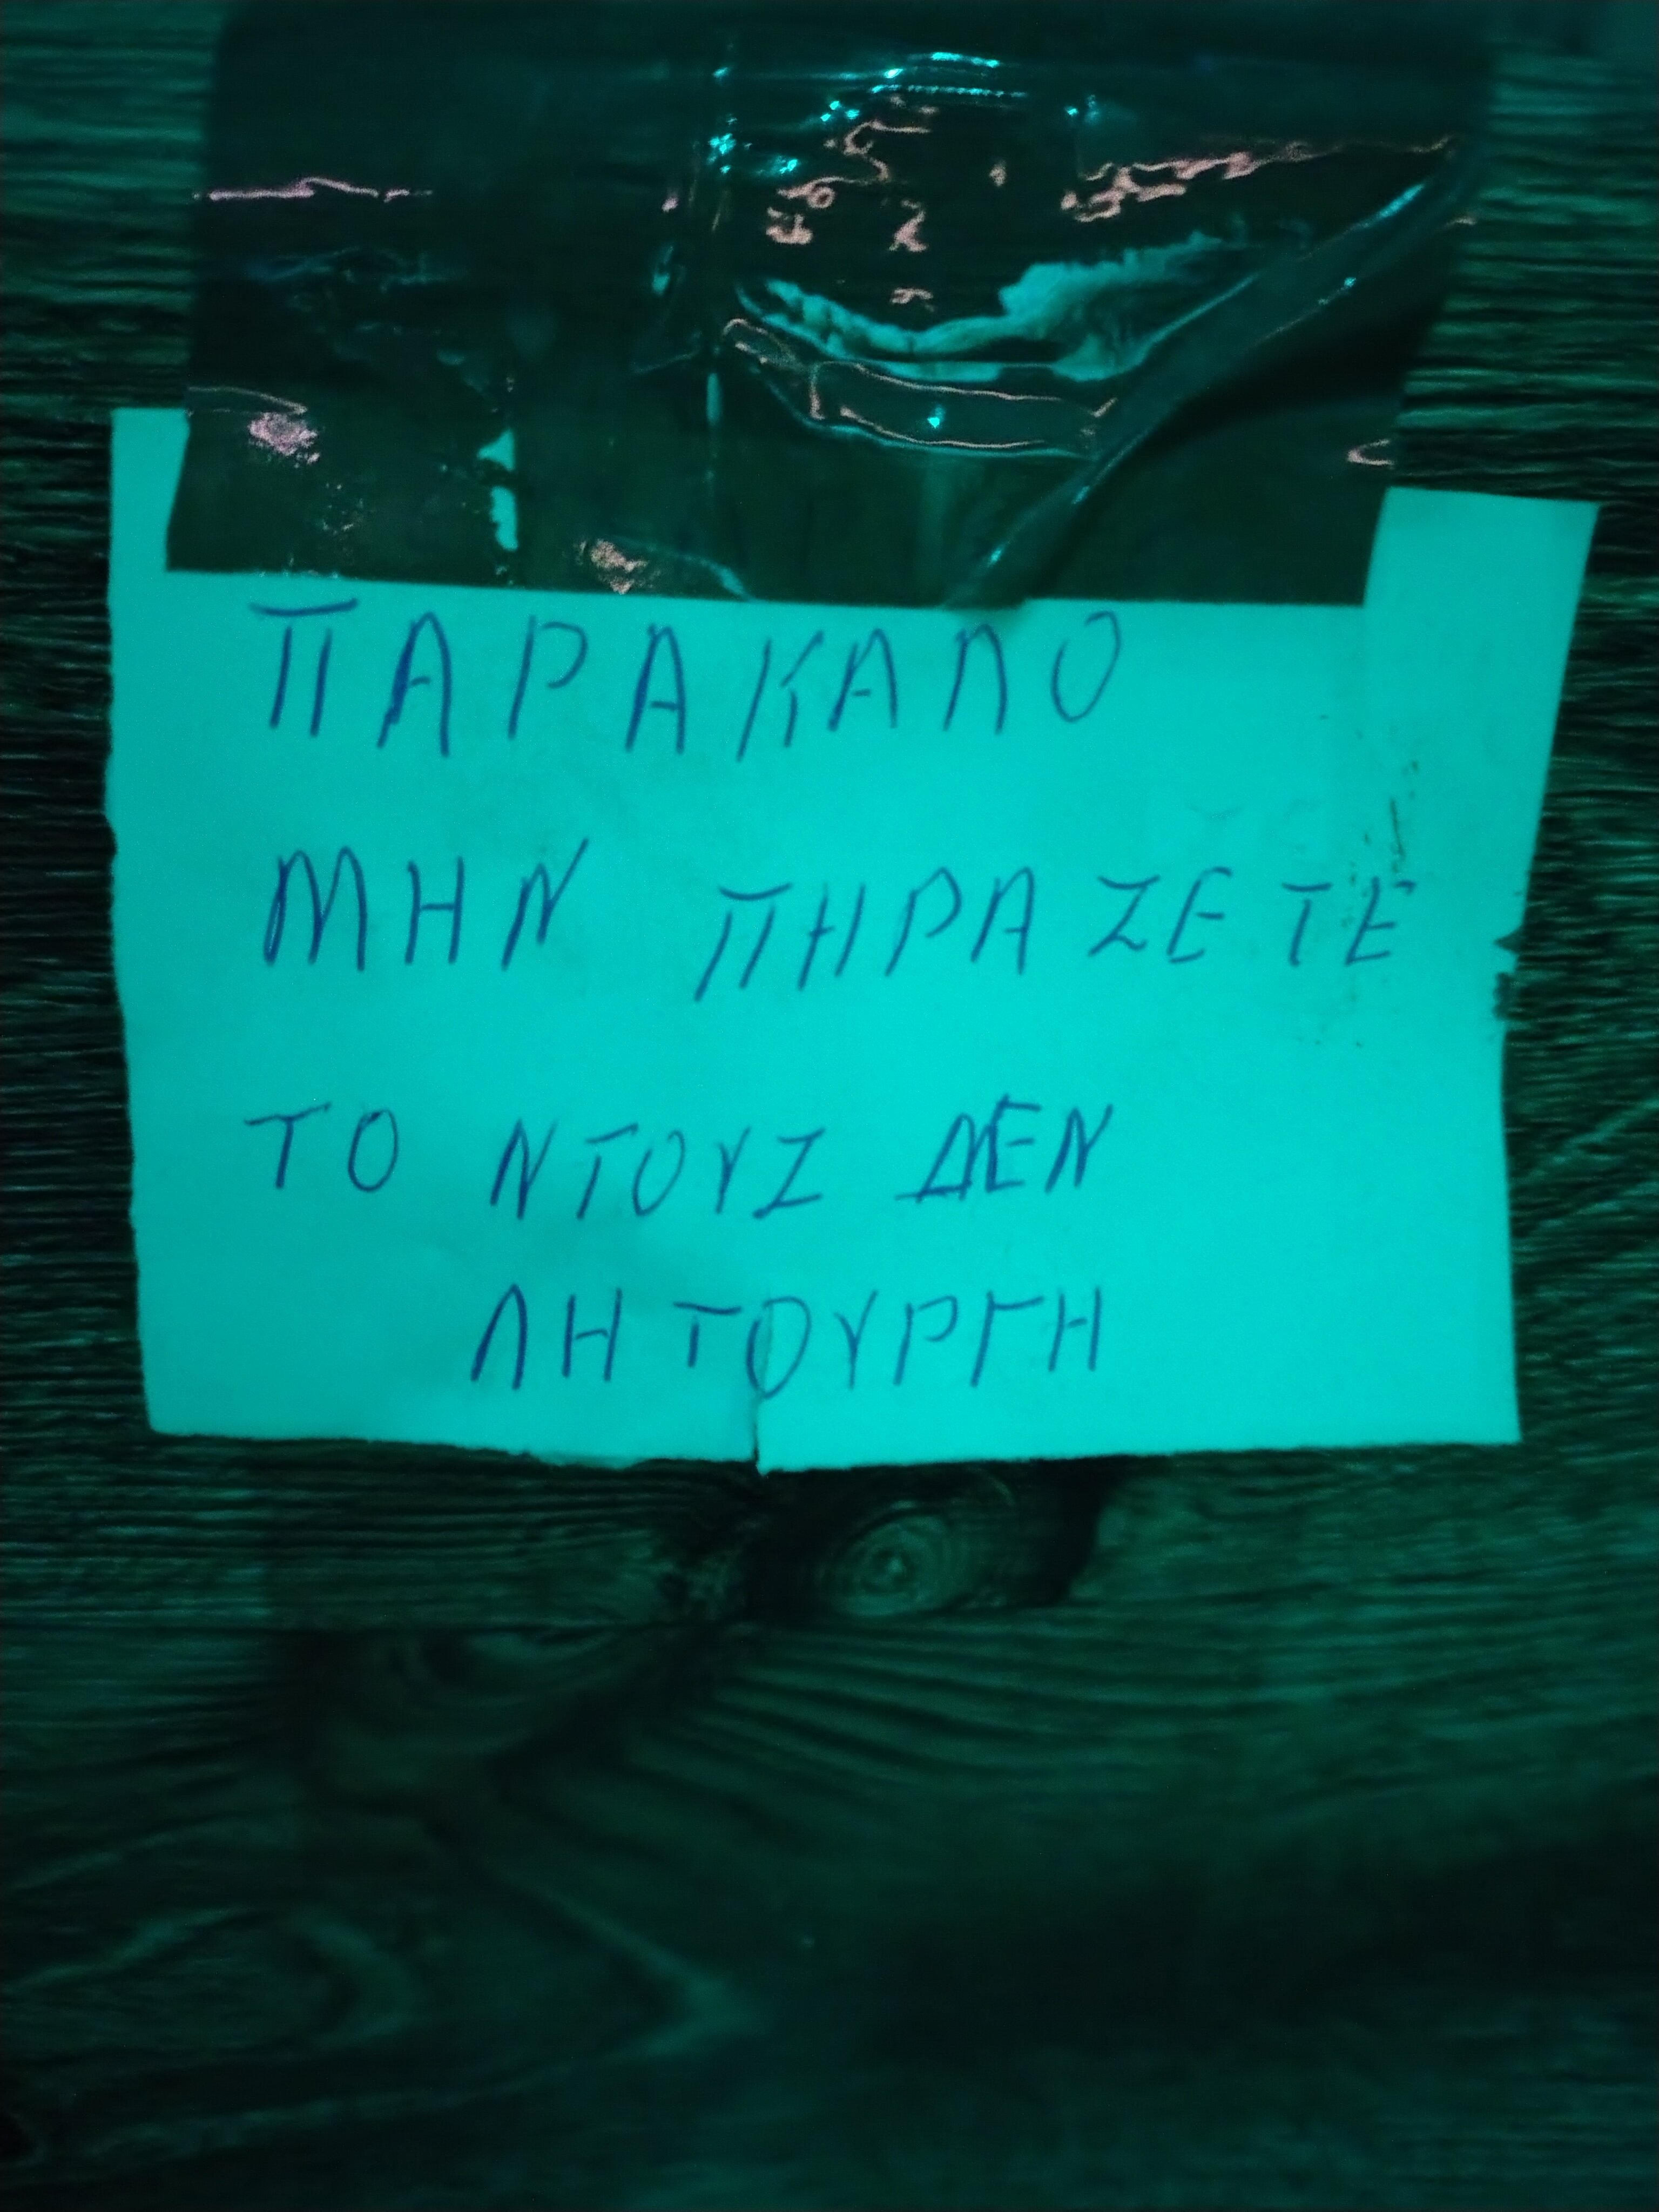 ΠΑΡΑΚΑΛΟ
ΜΗΝ ΠΗΡΑΖΕΤΕ
ΤΟ ΝΤΟΥΖ ΔΕΝ
ΛΗΤΟΥΡΓΗ